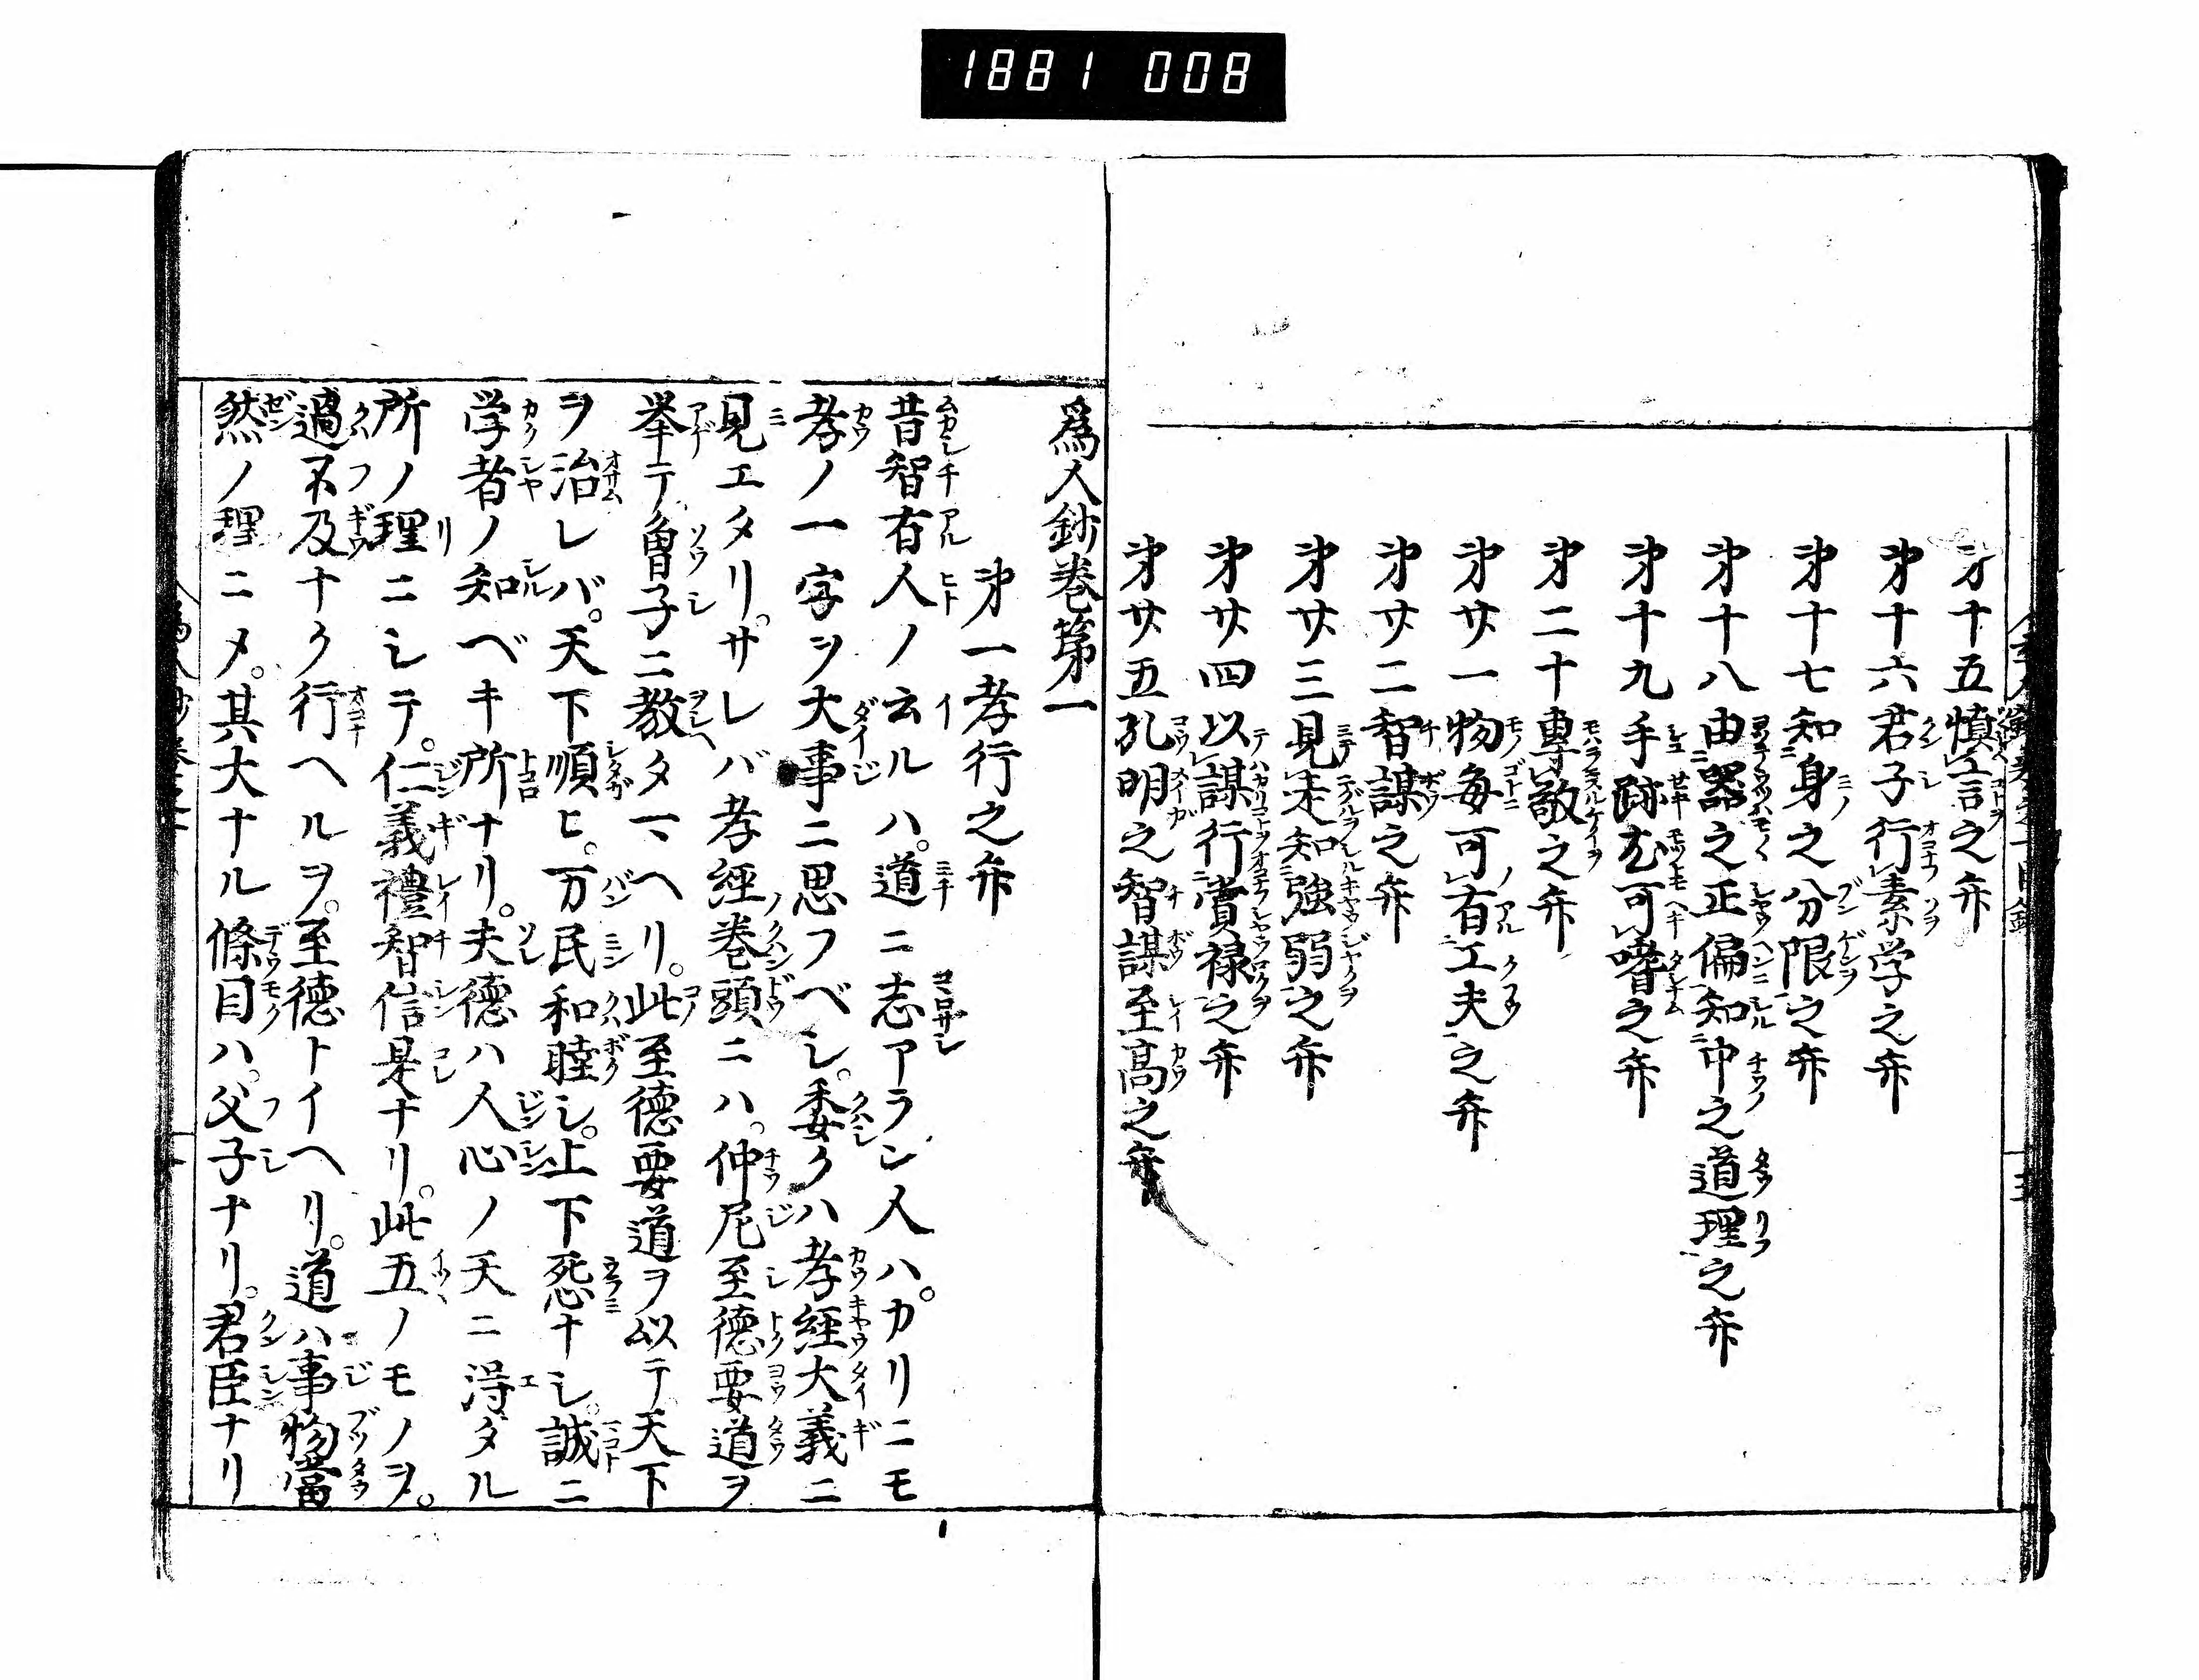 1881 008
第十五慎言之弁
第十六君子行素学之弁
第十七知身之分限之弁
第十八由器之正偏知中之道理之弁
第十九手跡尤可嗜之弁
第二十専敬之弁
第廿一物毎可有工夫之弁
第廿二智謀之弁
第廿三見走知強弱之弁
第廿四以謀行賞禄之弁
第廿五孔明之智謀至高之弁
為人鈔巻第一
第一孝行之弁
昔智有人ノ云ルハ。道ニ志アラン人ハ。カリニモ
孝ノ一字ヲ大事ニ思フベシ。委クハ孝經大義ニ
見エタリ。サレバ孝經巻頭ニハ。仲尼至德要道ヲ
挙テ曽子ニ教タマヘリ。此至德要道ヲ以テ天下
ヲ治レバ。天下順ヒ。万民和睦シ。上下怨ナシ。誠ニ
学者ノ知ベキ所ナリ。夫德ハ人心ノ天ニ得タル
所ノ理ニシテ。仁義禮智信是ナリ。此五ノモノヲ。
過不及ナク行ヘルヲ。至德トイヘリ。道ハ事物當
然ノ理ニメ。其大ナル條目ハ。父子ナリ。君臣ナリ